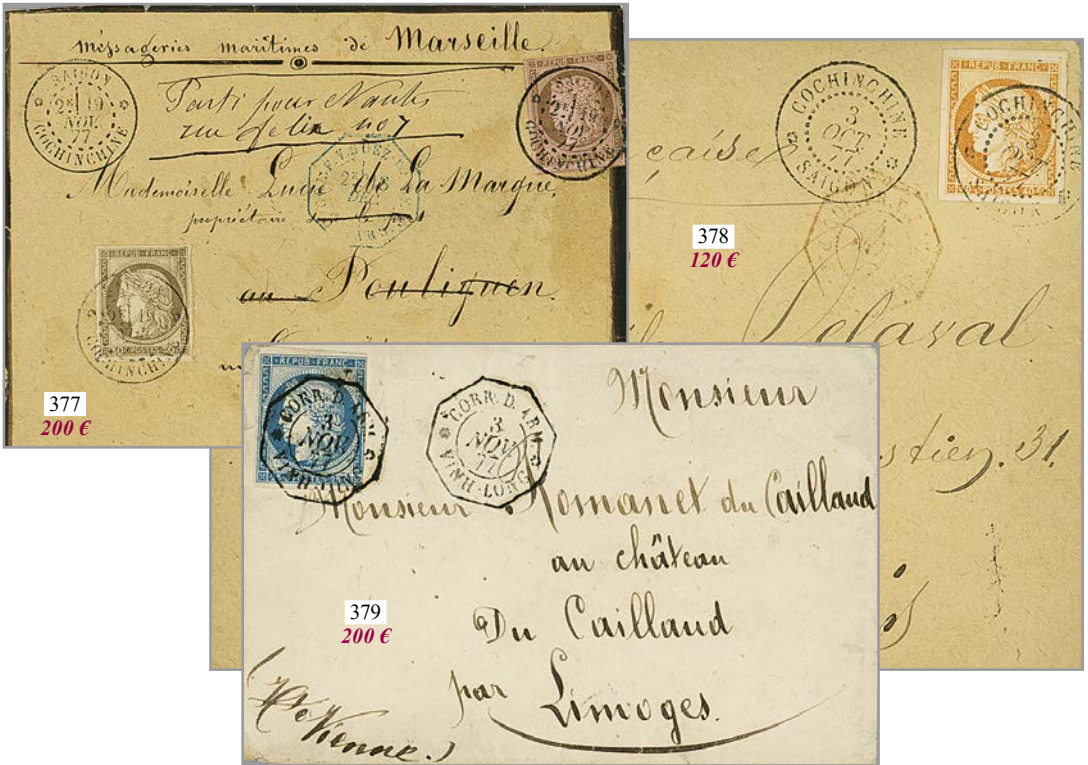 messageries maritimes de Marseille.
SAIGON
2E 19
NOV.
77
COCHINCHINE
Parti pour Nantes
rue felix no 7
REPUB FRANC
COCHINCHINE
Mademoiselle Lucie de La Margue
propriétaire
au Pouliguen.
REPUB FRANC
30 C. POSTES 30 C.
COCHINCHINE
377
200 €
COCHINCHINE
3
OCT.
77
SAIGON
REPUB FRANC
COCHINCHINE
SAIGON
çaise
378
120 €
Delaval
stien. 31.
REPUB FRANC
CORR. D. ARM.
3
NOV.
77
VINH-LONG
CORR. D. ARM.
3
NOV.
77
VINH-LONG
Monsieur
Monsieur Romanet du Caillaud
au château
Du Caillaud
par Limoges.
(Hte Vienne.)
379
200 €